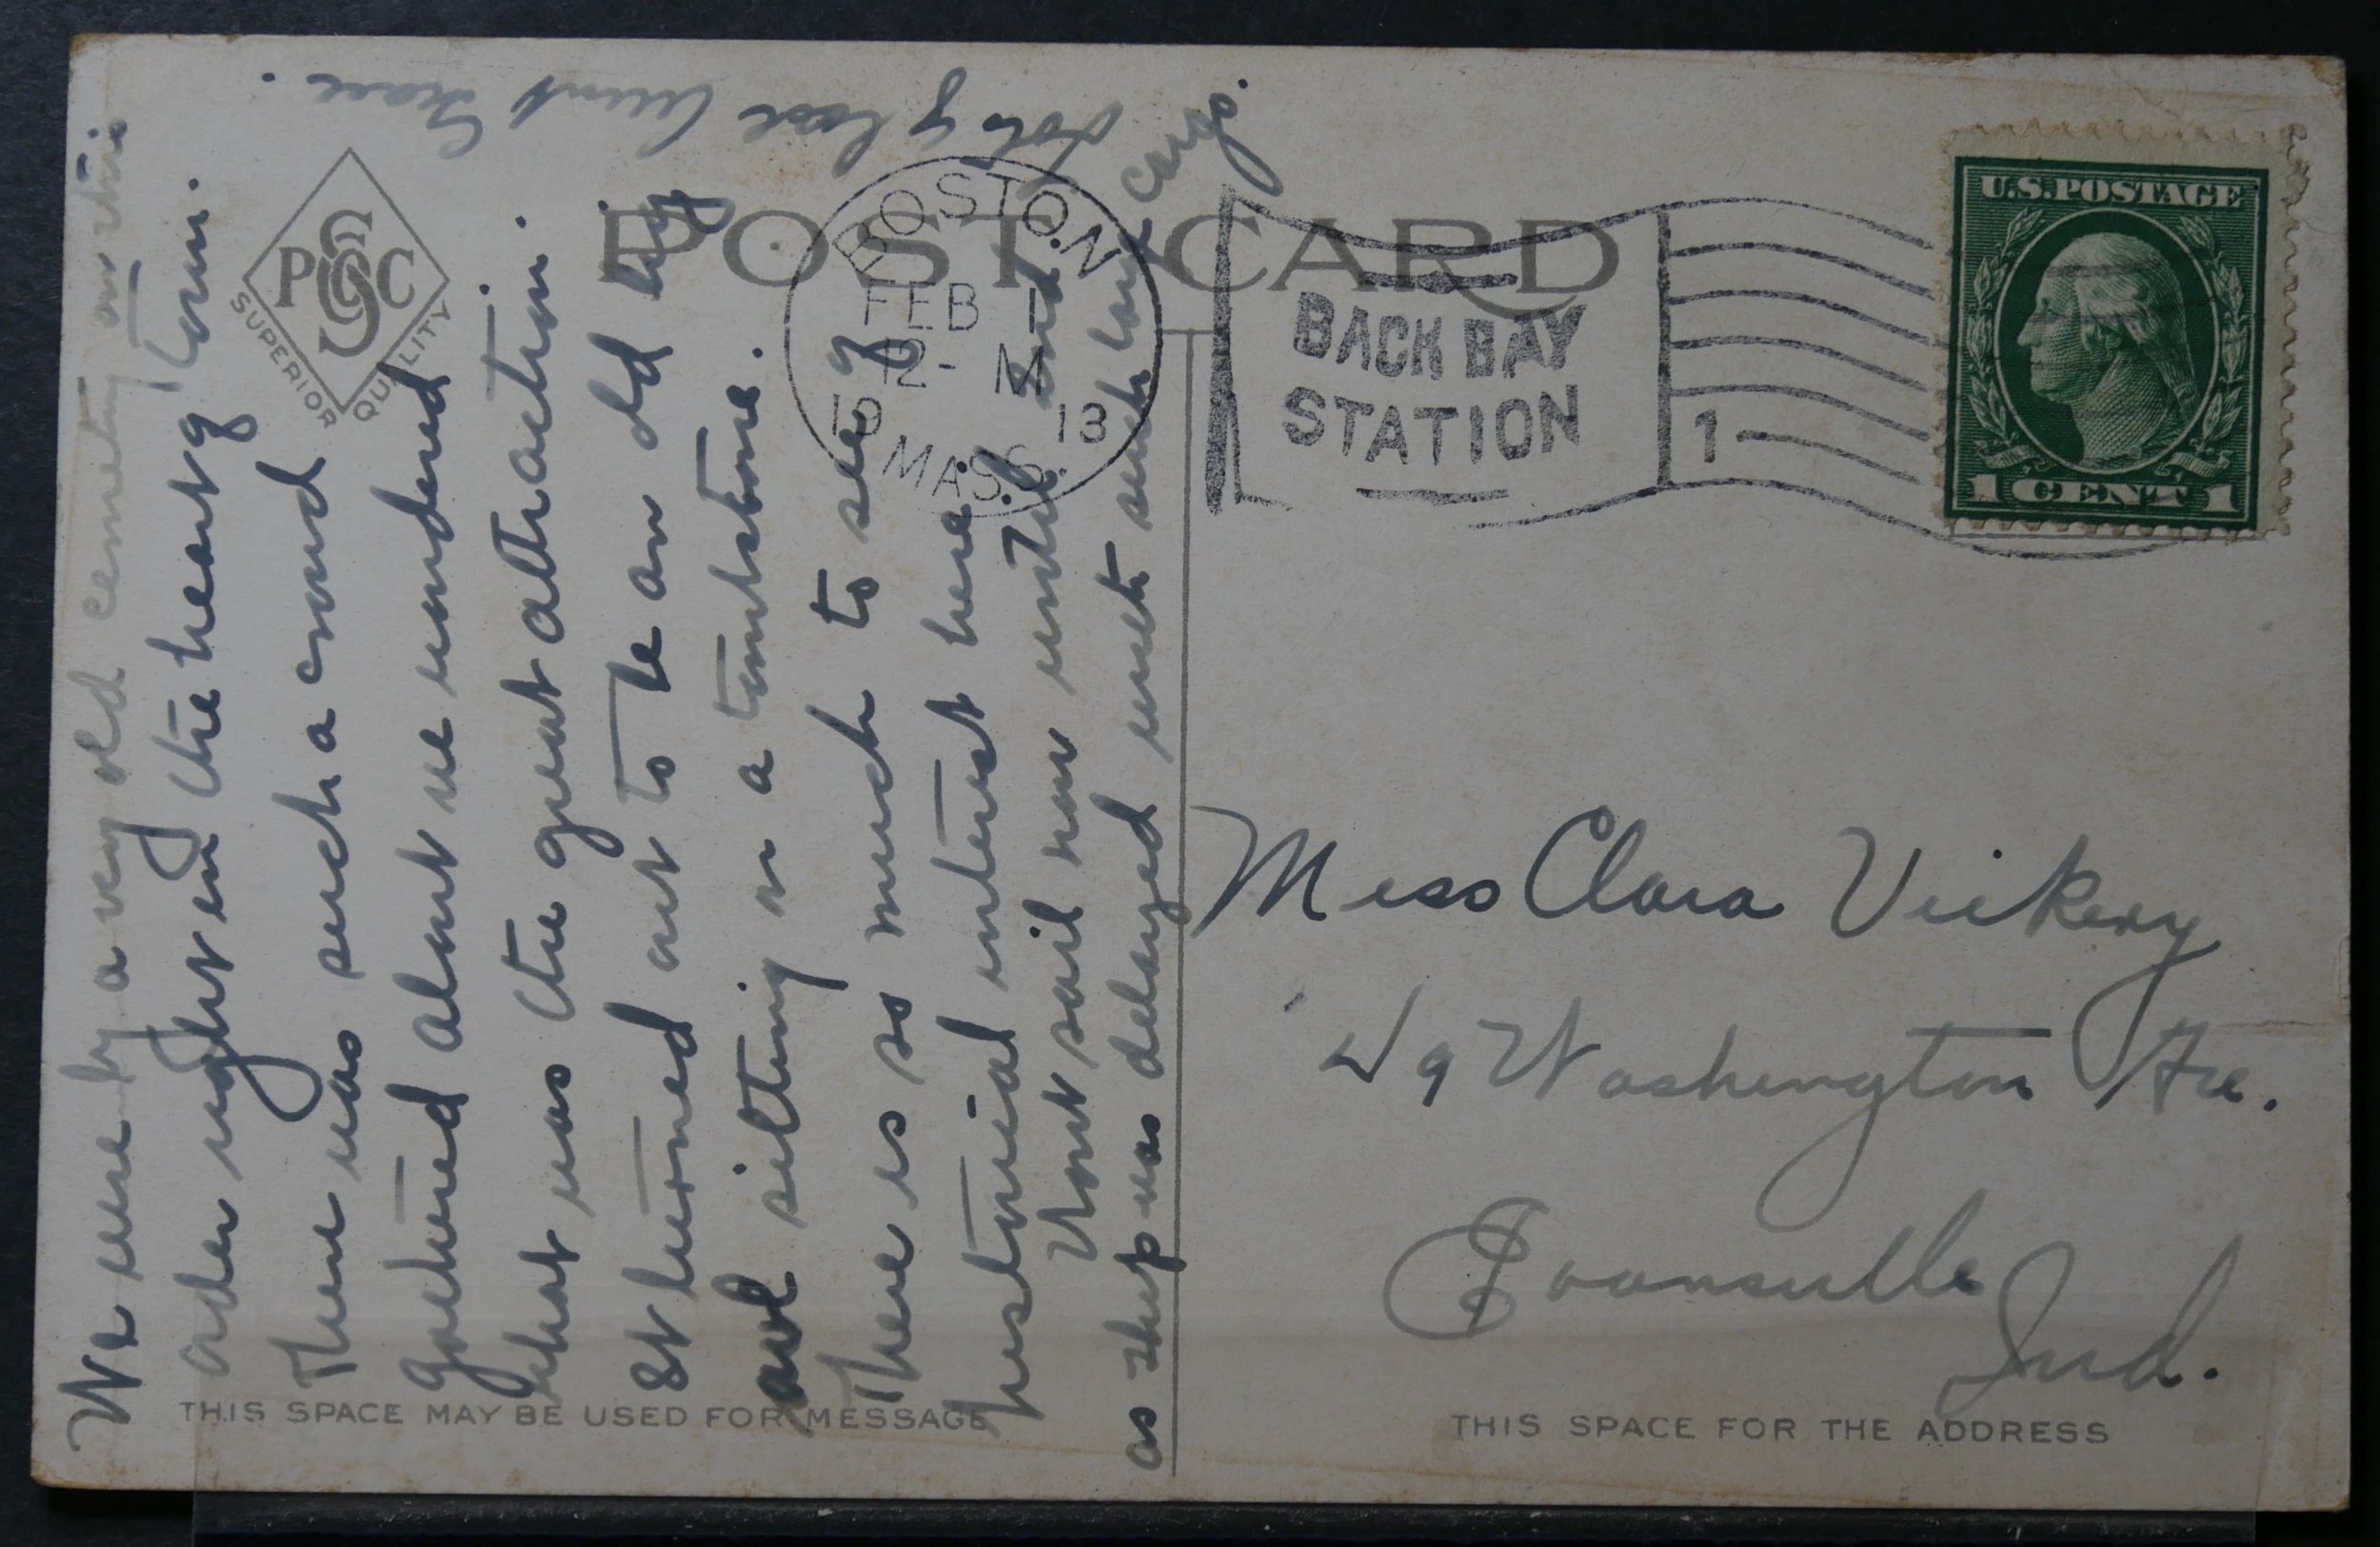 POST CARD
P S C
U S
SUPERIOR QUALITY
BOSTON
FEB 1
12- M
19 13
MASS.
BACK BAY
STATION
1
U.S.POSTAGE
1 CENT 1
We were by a very old cemetery on this
order right in the heart of town.
There was such a crowd
gathered about we wondered
what was the great attraction.
It turned out to be an old big
owl sitting on a tombstone.
There is so much to see of
historical interest here.
Wont sail now until 2nd
as ship was delayed with such large cargo.
Lots of love Aunt Grace.
Miss Clara Vickery
Washington Ave.
Evansville
Ind.
THIS SPACE MAY BE USED FOR MESSAGE
THIS SPACE FOR THE ADDRESS